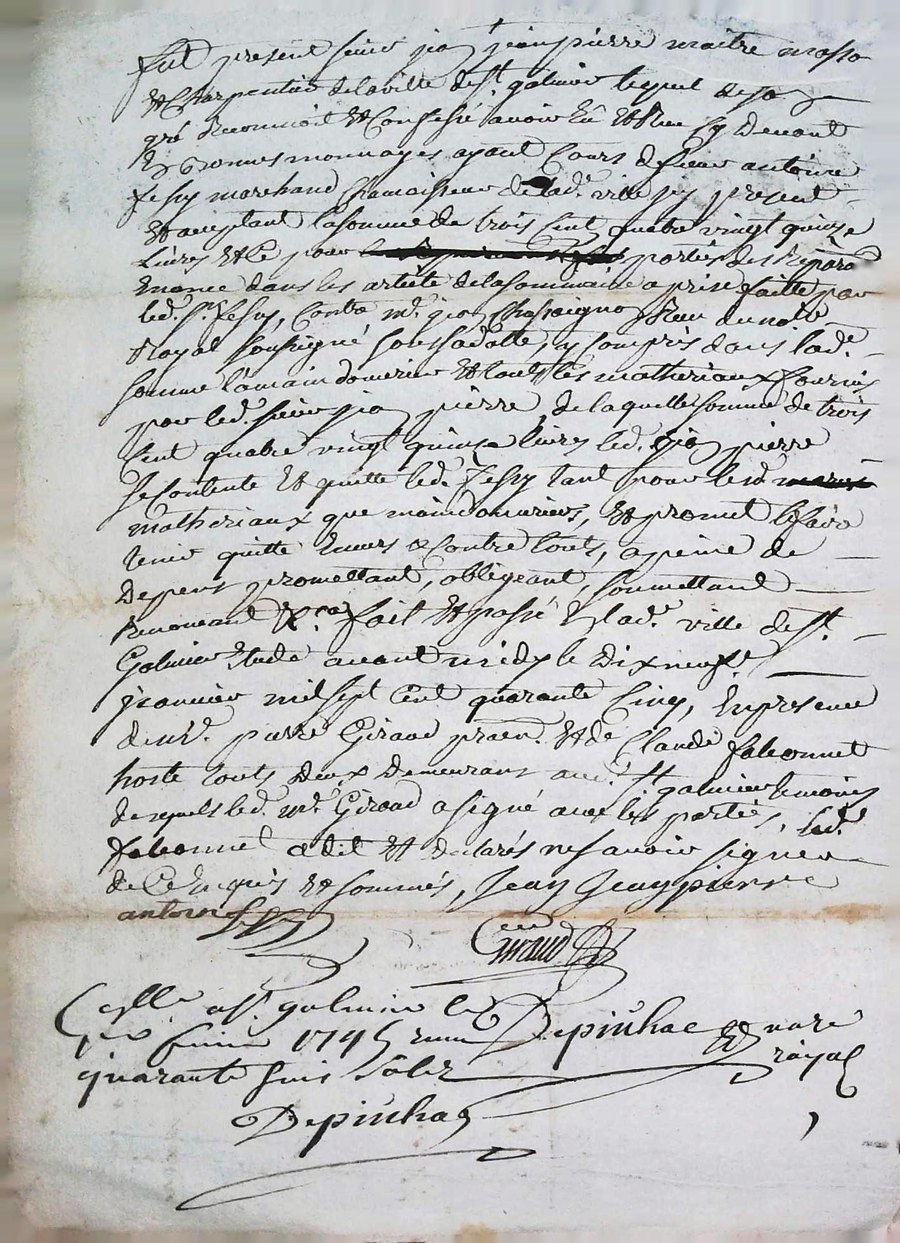 fut present sieur jean jeanpierre maitre masson
et Charpentier de la ville de st. galmier lequel de son
gré reconnoit et Confesse avoir Eû et Recu Cy Devant
En bonnes monnoyes ayant Cours de sieur antoine
marchand Chamoisseur de lad. ville jcy present
et aceptant la somme de trois Cent quatre vingt quinze
Livres et Ce pour portés des Repara
Enonce dans les articles de la sommaire a prise faitte par
led. sr. Contre me. jean Chassaigno
Royal soussigné sous sa datte, y Compris dans lad.
somme lamain domerier et touts les matheriaux fournis
par led. sieur jean pierre, de laquelle somme de trois
Cent quatre vingt quinze livres led. jean pierre
se Contente et quitte led. tant pour lesd
matheriaux que main domeriers, et promet le faire
tenir quitte Envers & Contre touts, a peine de
Depens promettant, obligeant, soumettant
Renoncant &ca. fait et passé En lad. ville de st.
Galmier Etude avant midy le Dix neufe
jeanvier mil sept Cent quarante Cinq, En presence
de me. pierre Giraud praen. et de Claude faleonnet
hoste touts Deux Demeurant aud. st. galmier temoins
desquels led. me. Giraud a signé avec les partiés, led.
faleonnet a dit et declarés ne savoir signer
de Ce Enquis et sommés, Jean Jeanpierre
antoine
Giraud
a st. galmier le
1745 Depiuhac nore
quarante huis solz royal
Depiuhac